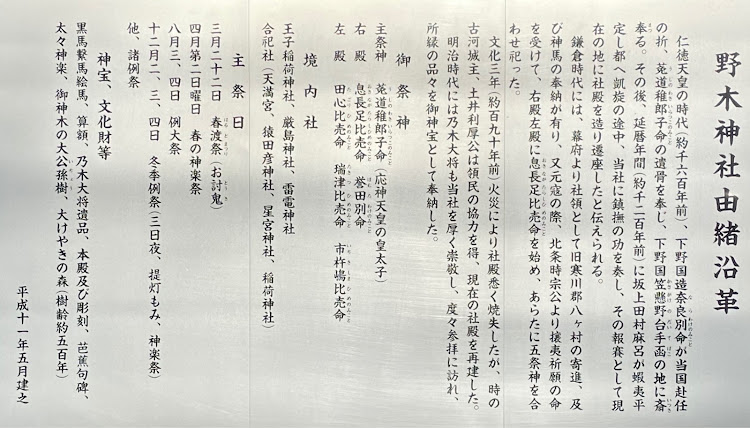 野木神社由緒沿革
仁徳天皇の時代(約千六百年前)、下野国造奈良別命が当国赴任
の折、莵道稚郎子命の遺骨を奉じ、下野国笠懸野台手函の地に斎
奉る。その後、延暦年間(約千二百年前)に坂上田村麻呂が蝦夷平
定し都へ凱旋の途中、当社に鎮撫の功を奏し、その報賽として現
在の地に社殿を造り遷座したと伝えられる。
鎌倉時代には、幕府より社領として旧寒川郡八ヶ村の寄進、及
び神馬の奉納が有り、又元寇の際、北条時宗公より攘夷祈願の命
を受けて、右殿左殿に息長足比売命を始め、あらたに五祭神を合
わせ祀った。
文化三年(約百九十年前)火災により社殿悉く焼失したが、時の
古河城主、土井利厚公は領民の協力を得、現在の社殿を再建した。
明治時代には乃木大将も当社を厚く崇敬し、度々参拝に訪れ、
所縁の品々を御神宝として奉納した。
御祭神
主祭神 莵道稚郎子命(応神天皇の皇太子)
右殿 息長足比売命 誉田別命
左殿 田心比売命 瑞津比売命 市杵嶋比売命
境内社
王子稲荷神社、厳島神社、雷電神社
合祀社(天満宮、猿田彦神社、星宮神社、稲荷神社)
主祭日
三月二十二日 春渡祭(お討鬼)
四月第二日曜日 春の神楽祭
八月三、四日 例大祭
十二月二、三、四日 冬季例祭(三日夜、提灯もみ、神楽祭)
他、諸例祭
神宝、文化財等
黒馬繋馬絵馬、算額、乃木大将遺品、本殿及び彫刻、芭蕉句碑、
太々神楽、御神木の大公孫樹、大けやきの森(樹齢約五百年)
平成十一年五月建之